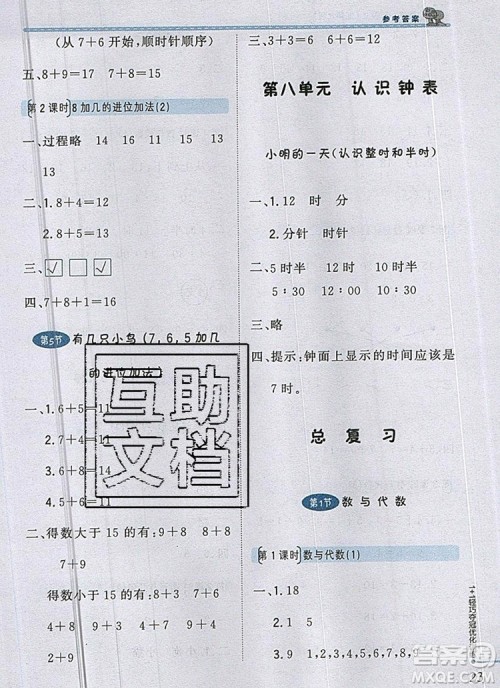 参考答案
(从 7+6 开始，顺时针顺序)
五、8+9=17 8+8=16
第2课时 8加几的进位加法(2)
一、过程略 14 16 11 15
13 15 17 13 11 12
13
二、1.8+4=12
2.8+5=13
三、☑ □ ☑
四、7+8+1=16
第5节 有几只小鸟(7,6,5加几
的进位加法)
一、1.6+5=11
2.7+6=13
3.6+5=11
4.5+6=11
二、得数大于 15 的有:9+8 8+8
7+9
得数小于 15 的有:5+7 6+8
4+7 8+4 9+3
2+9
三、3+3=6 6+6=12
第八单元 认识钟表
小明的一天(认识整时和半时)
一、1.12 时 分
2.分针 时针
二、5 时半 10 时 9 时半
5:30 10:00 9:30
三、略
四、提示:钟面上显示的时间应该是
7 时。
总复习
第1节 数与代数
第1课时 数与代数(1)
一、1.18
2.20
3.9 1,2,3,4,5,6,7,8,9
互助
文档
1+1轻巧夺冠优化
答案圈
MXQE.COM